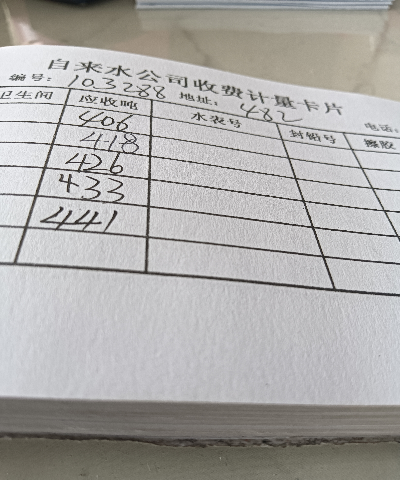 自来水公司收费计量卡片
编号: 103288 地址: 482 电话:
卫生间 应收吨 水表号 封铅号
406
418
426
433
441